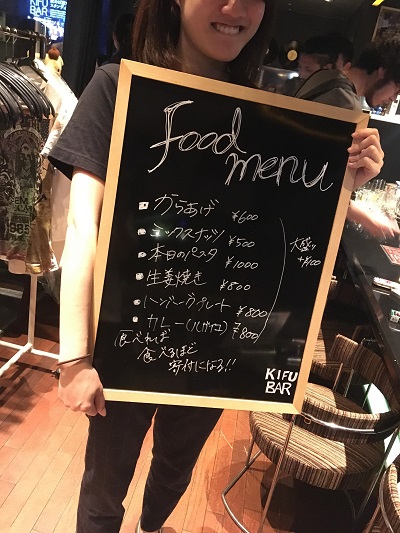 KIFU
BAR
Food
menu
からあげ ¥600
ミックスナッツ ¥500
本日のパスタ ¥1000
生姜焼き ¥800
ハンバーグプレート ¥800
カレー ¥800
大盛り
+¥100
食べれば
食べるほど
寄付になる!!
KIFU
BAR
1985